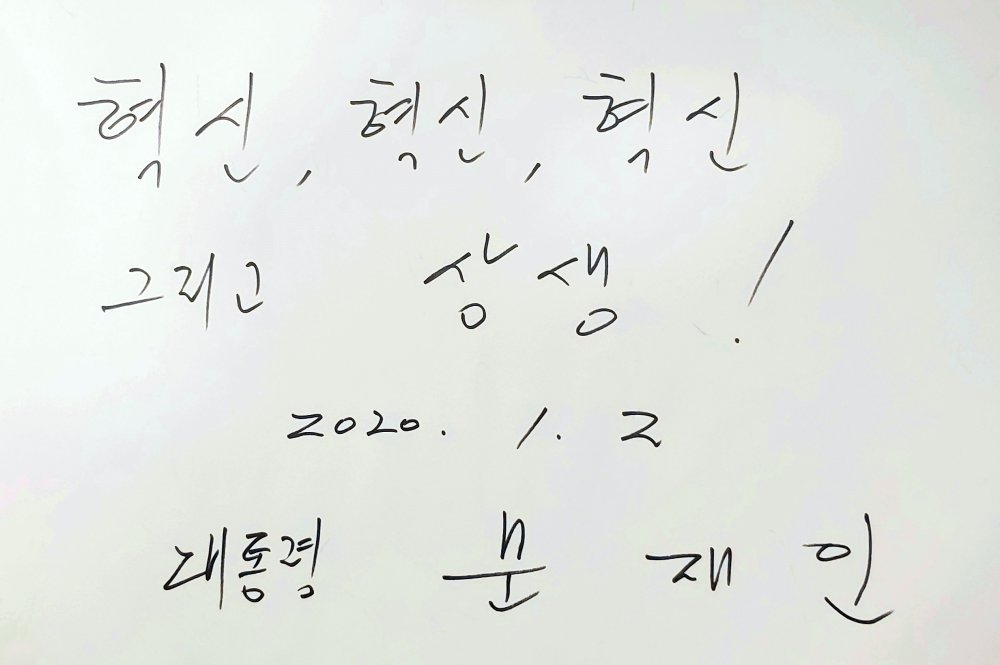 혁신, 혁신, 혁신
그리고 상생!
2020. 1. 2
대통령 문재인